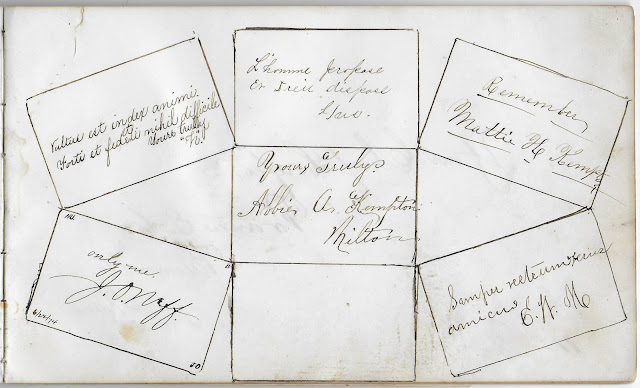 Vultus est index animi.
Forti et fideli nihil difficile
Yours truly
L'homme propose
et Dieu dispose
Remember
Mattie H Kempton
Yours Truly
Abbie A. Kempton
Milton
only me
J. O. Neff.
6/24/74
Semper
amicus
E. H. M